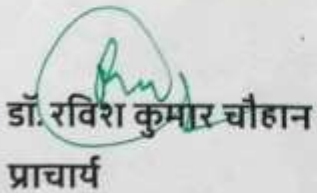 डॉ. रविश कुमार चौहान
प्राचार्य